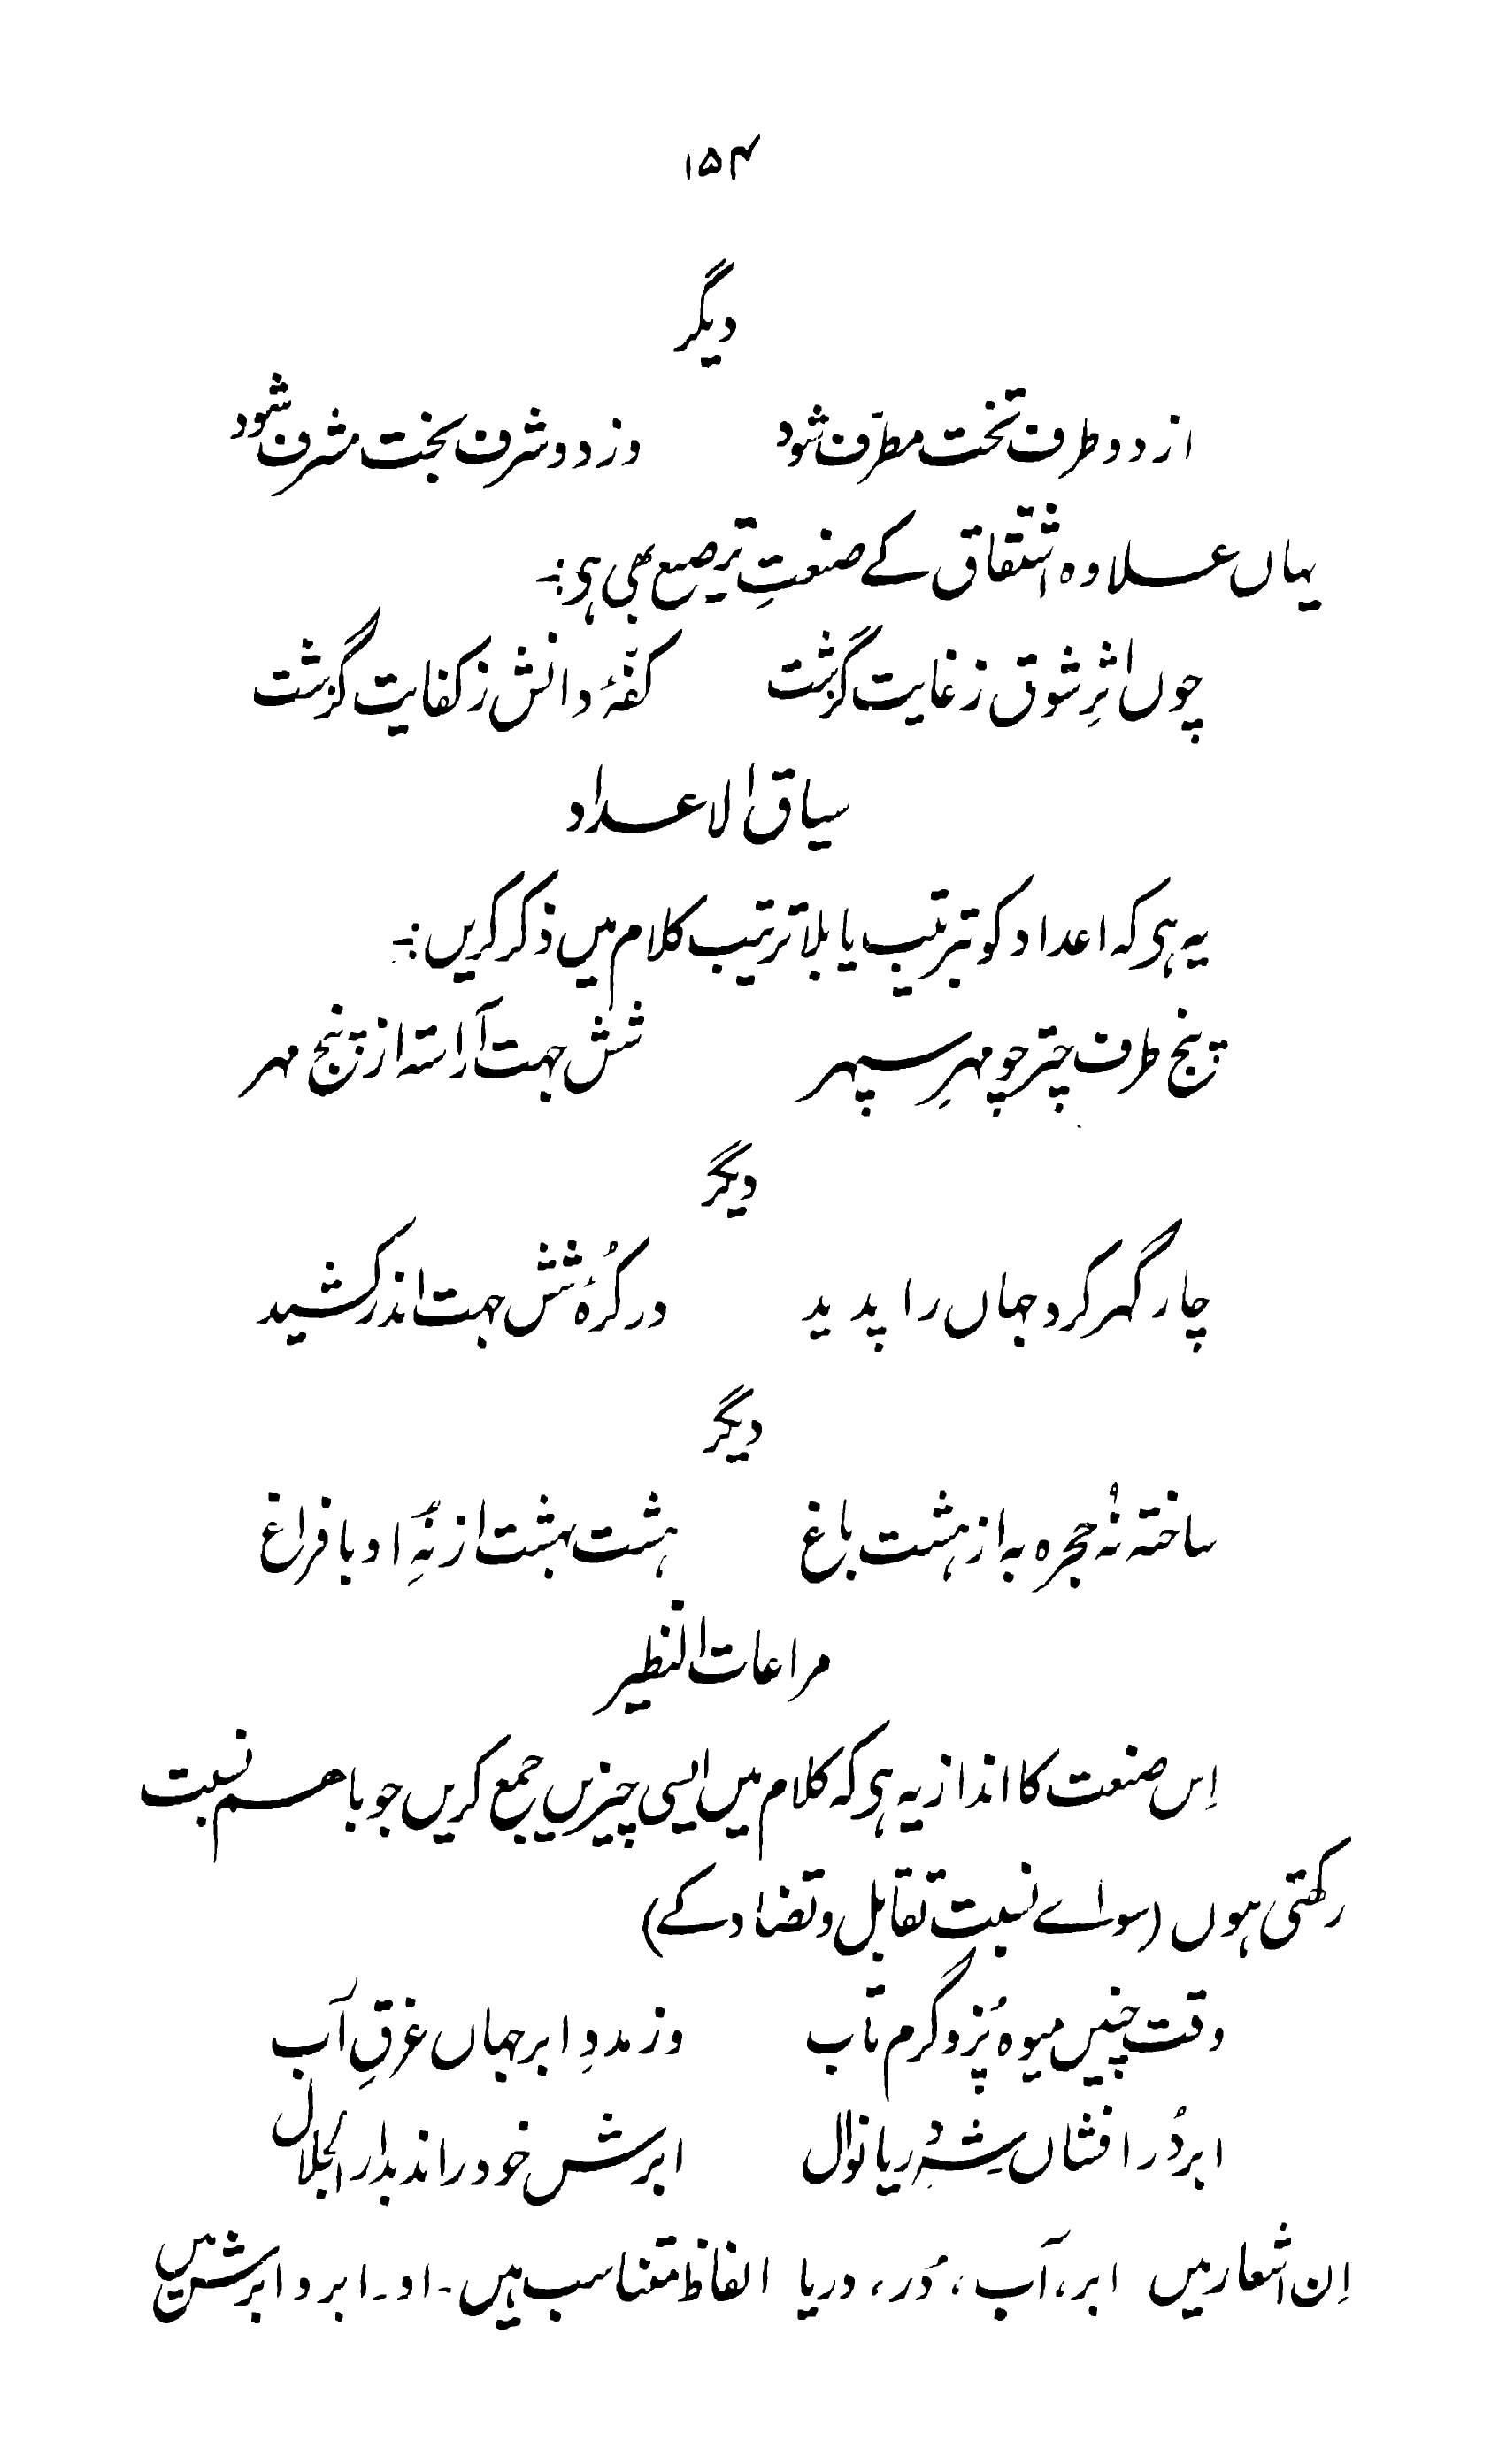 ۱۵۴
دیگر
از دو طرف تخت مطرّف شود وز دو شرف بخت مشرف شود
یہاں علاوہ اشتقاق کے صنعتِ ترصیع بھی ہی:-
چوں اثرِ شوق ز غایت گزشت کفّۂ دانش ز کفایت گزشت
سیاق الاعداد
یہ ہی کہ اعداد کو بترتیب یا بلا ترتیب کلام میں ذکر کریں:-
پنج طرف چتر چو مہرِ سپہر شش جہت آراستہ از پنج مہر
دیگر
چار گہر کرد جہاں را پدید در کُرۂ شش جہت اندر کشید
دیگر
ساختہ نُہ حجرہ بہ از ہشت باغ ہشت بہشت از نُہِ او با فراغ
مراعات النظیر
اِس صنعت کا انداز یہ ہی کہ کلام میں ایسی چیزیں جمع کریں جو باہم نسبت
رکھتی ہوں (سواے نسبت تقابل و تضاد کے)
وقت چنیں میوہ پُز و گرم تاب وز مددِ ابر جہاں غرقِ آب
ابر دُر افشاں شہِ دریا نوال ابرش خود راند بدار الجلال
اِن اشعار میں ابر، آب، دُر، دریا الفاظ متناسب ہیں۔ او۔ ابر و ابرش میں